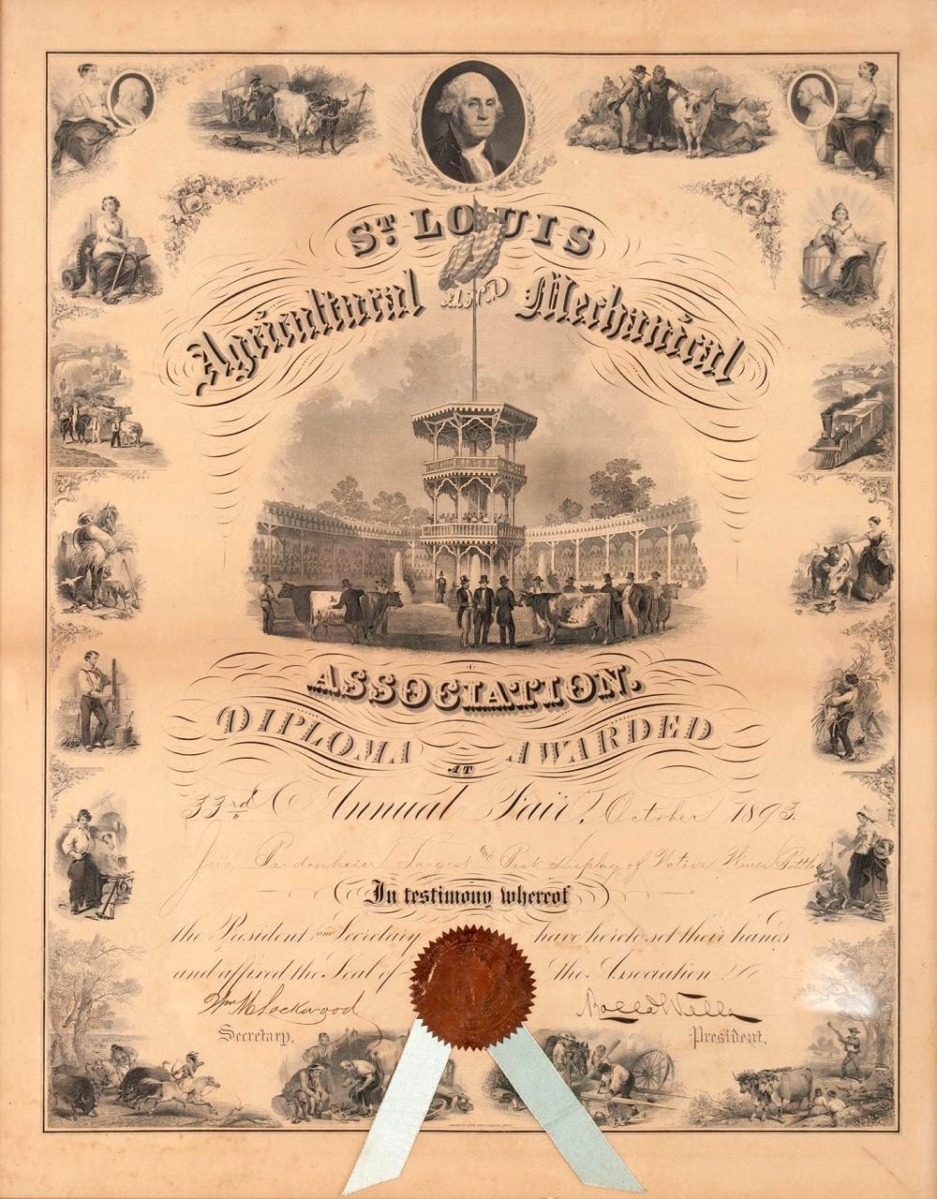 ST. LOUIS
Agricultural and Mechanical
ASSOCIATION.
DIPLOMA AWARDED
AT
33rd Annual Fair, October 1893.
Largest and Best Display of Native Wines
In testimony whereof
the President and Secretary have hereto set their hands
and affixed the Seal of the Association
Wm M Lockwood Rolla Wells
Secretary. President.